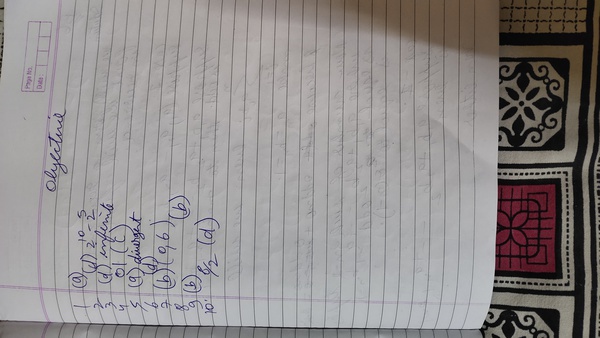 Page No.
Date:
Objective
1 (a)
2 (d) 2^10 - 2^5
3 (d) infinite
4 01 (c)
5 (a) divergent
6 (d)
7 (b) (0,6)
8 (b)
9 (b)
10. 8/2 (d)